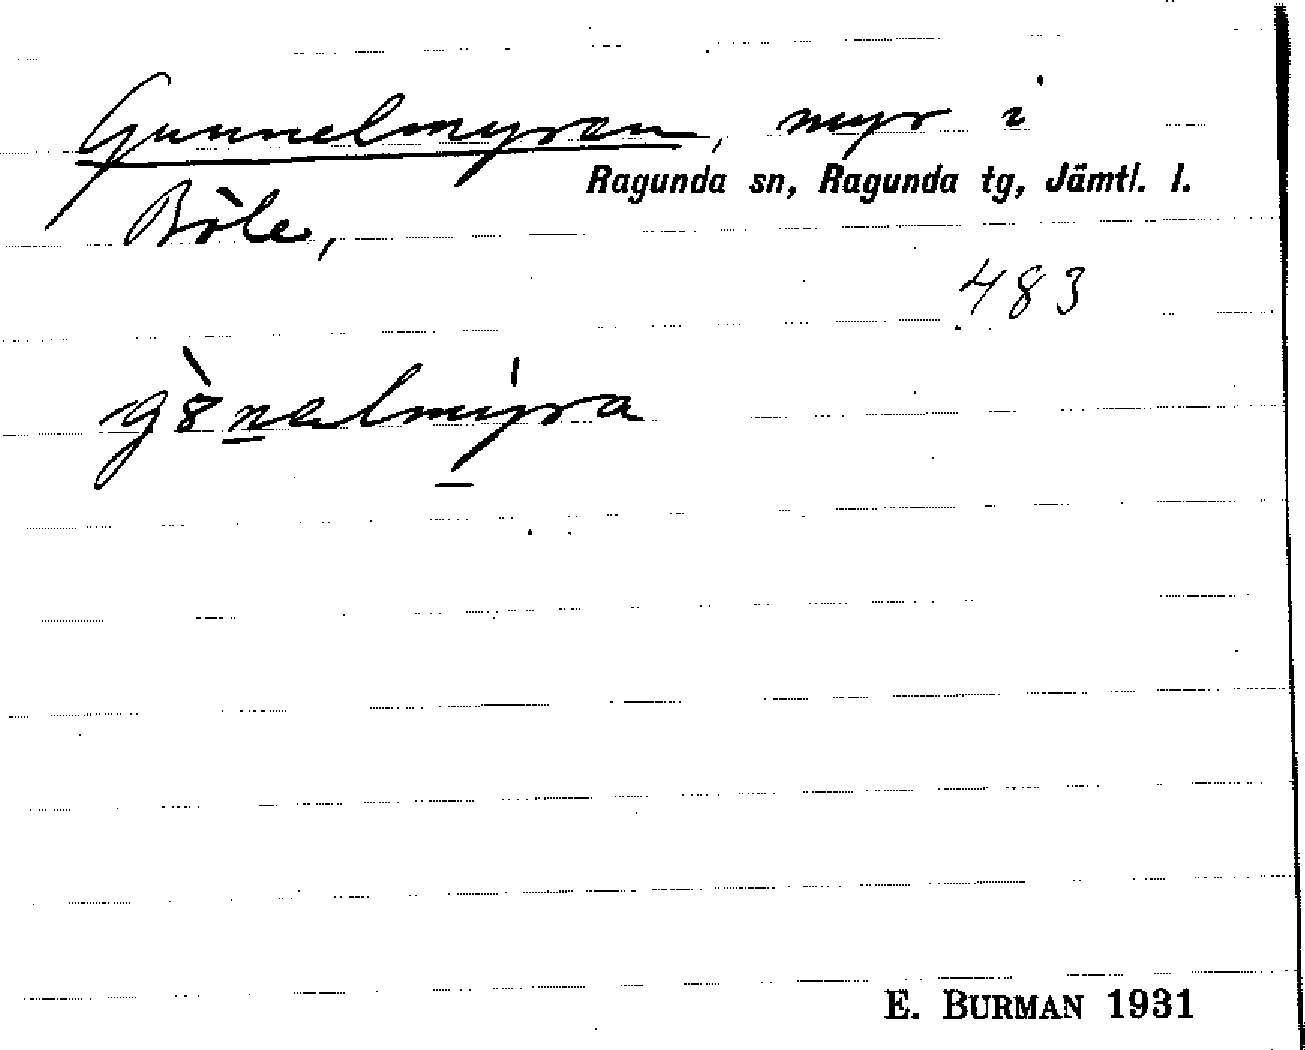 Gunnelmyren, myr i
Ragunda sn, Ragunda tg, Jämtl. l.
Böle,
483
E. BURMAN 1931